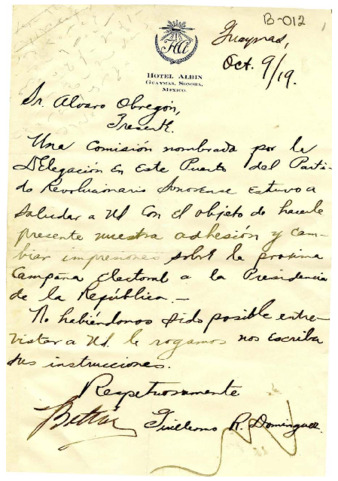 B-012
HA
HOTEL ALBIN
GUAYMAS, SONORA,
MEXICO.
Guaymas,
Oct. 9/19.
Sr. Alvaro Obregón,
Presente.
Una Comisión nombrada por la
Delegación en Este Puerto del Parti-
do Revolucionario Sonorense estuvo a
saludar a Ud con el objeto de hacerle
presente nuestra adhesión y cam-
biar impresiones sobre la proxima
Campaña Electoral a la Presidencia
de la República.—
No habiéndonos sido posible entre-
vistar a Ud. le rogamos nos escriba
sus instrucciones.
Respetuosamente
Guillermo R. Domínguez.